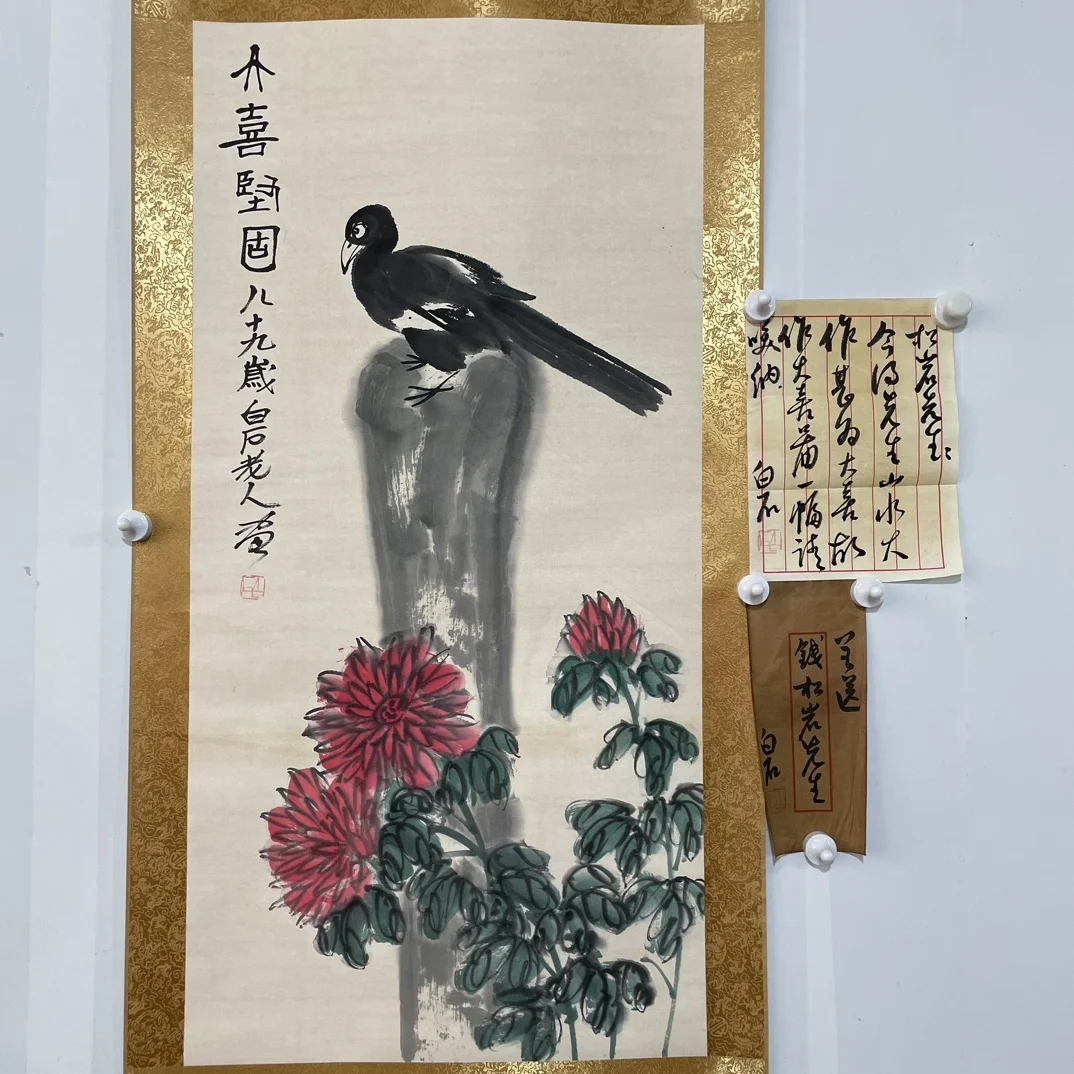 大喜堅固 八十九歲白石老人畫
松岩先生
今得先生山水大
作甚为大喜故
作大喜一幅请
咲纳 白石
呈送
錢松岩先生
白石